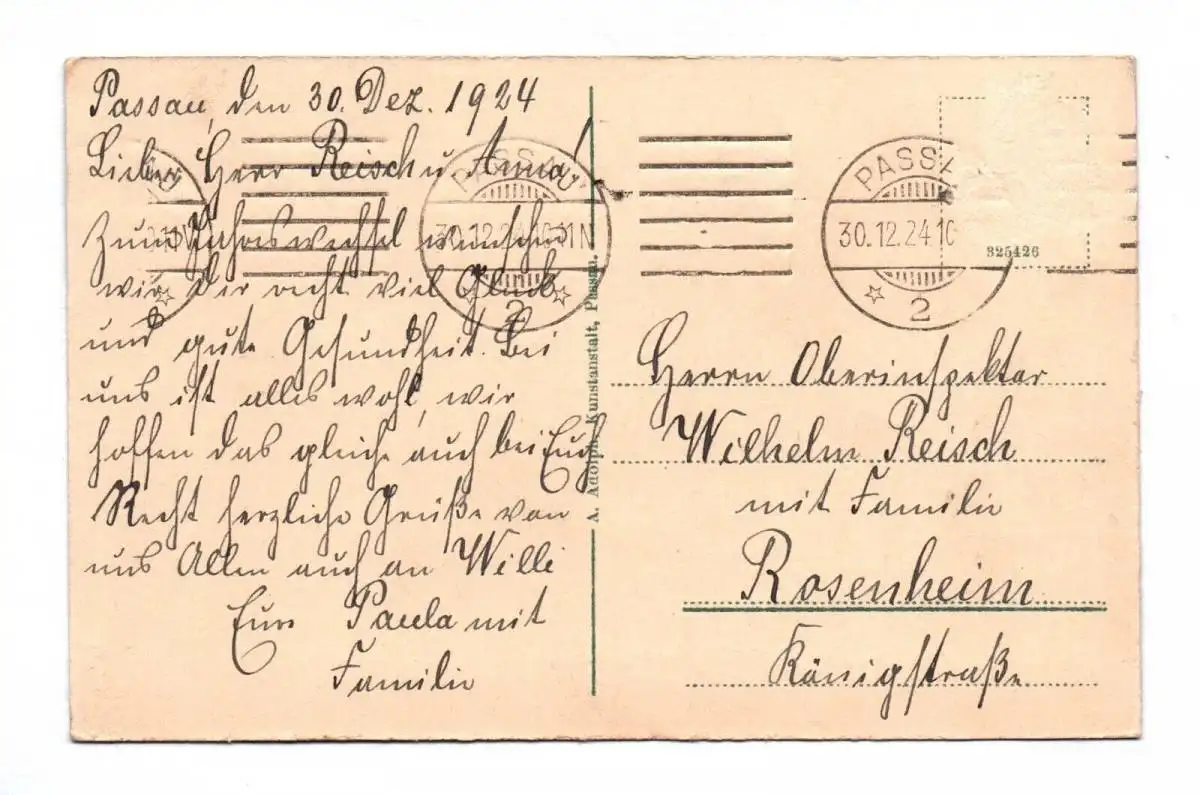 Passau, den 30. Dez. 1924
Lieber Herr Reisch u. Anna!
Zum Jahreswechsel wünschen
wir Dir recht viel Glück
und gute Gesundheit. Bei
uns ist alles wohl, wir
hoffen das gleiche auch bei Euch
Recht herzliche Grüße von
uns Allen auch an Willi
Eure Paula mit
Familie
A. Adolph, Kunstanstalt, Passau.
PASSAU
30.12.24 10-11N
2
PASSA
30.12.24 10
2
325426
Herrn Oberinspektor
Wilhelm Reisch
mit Familie
Rosenheim
Königstraße